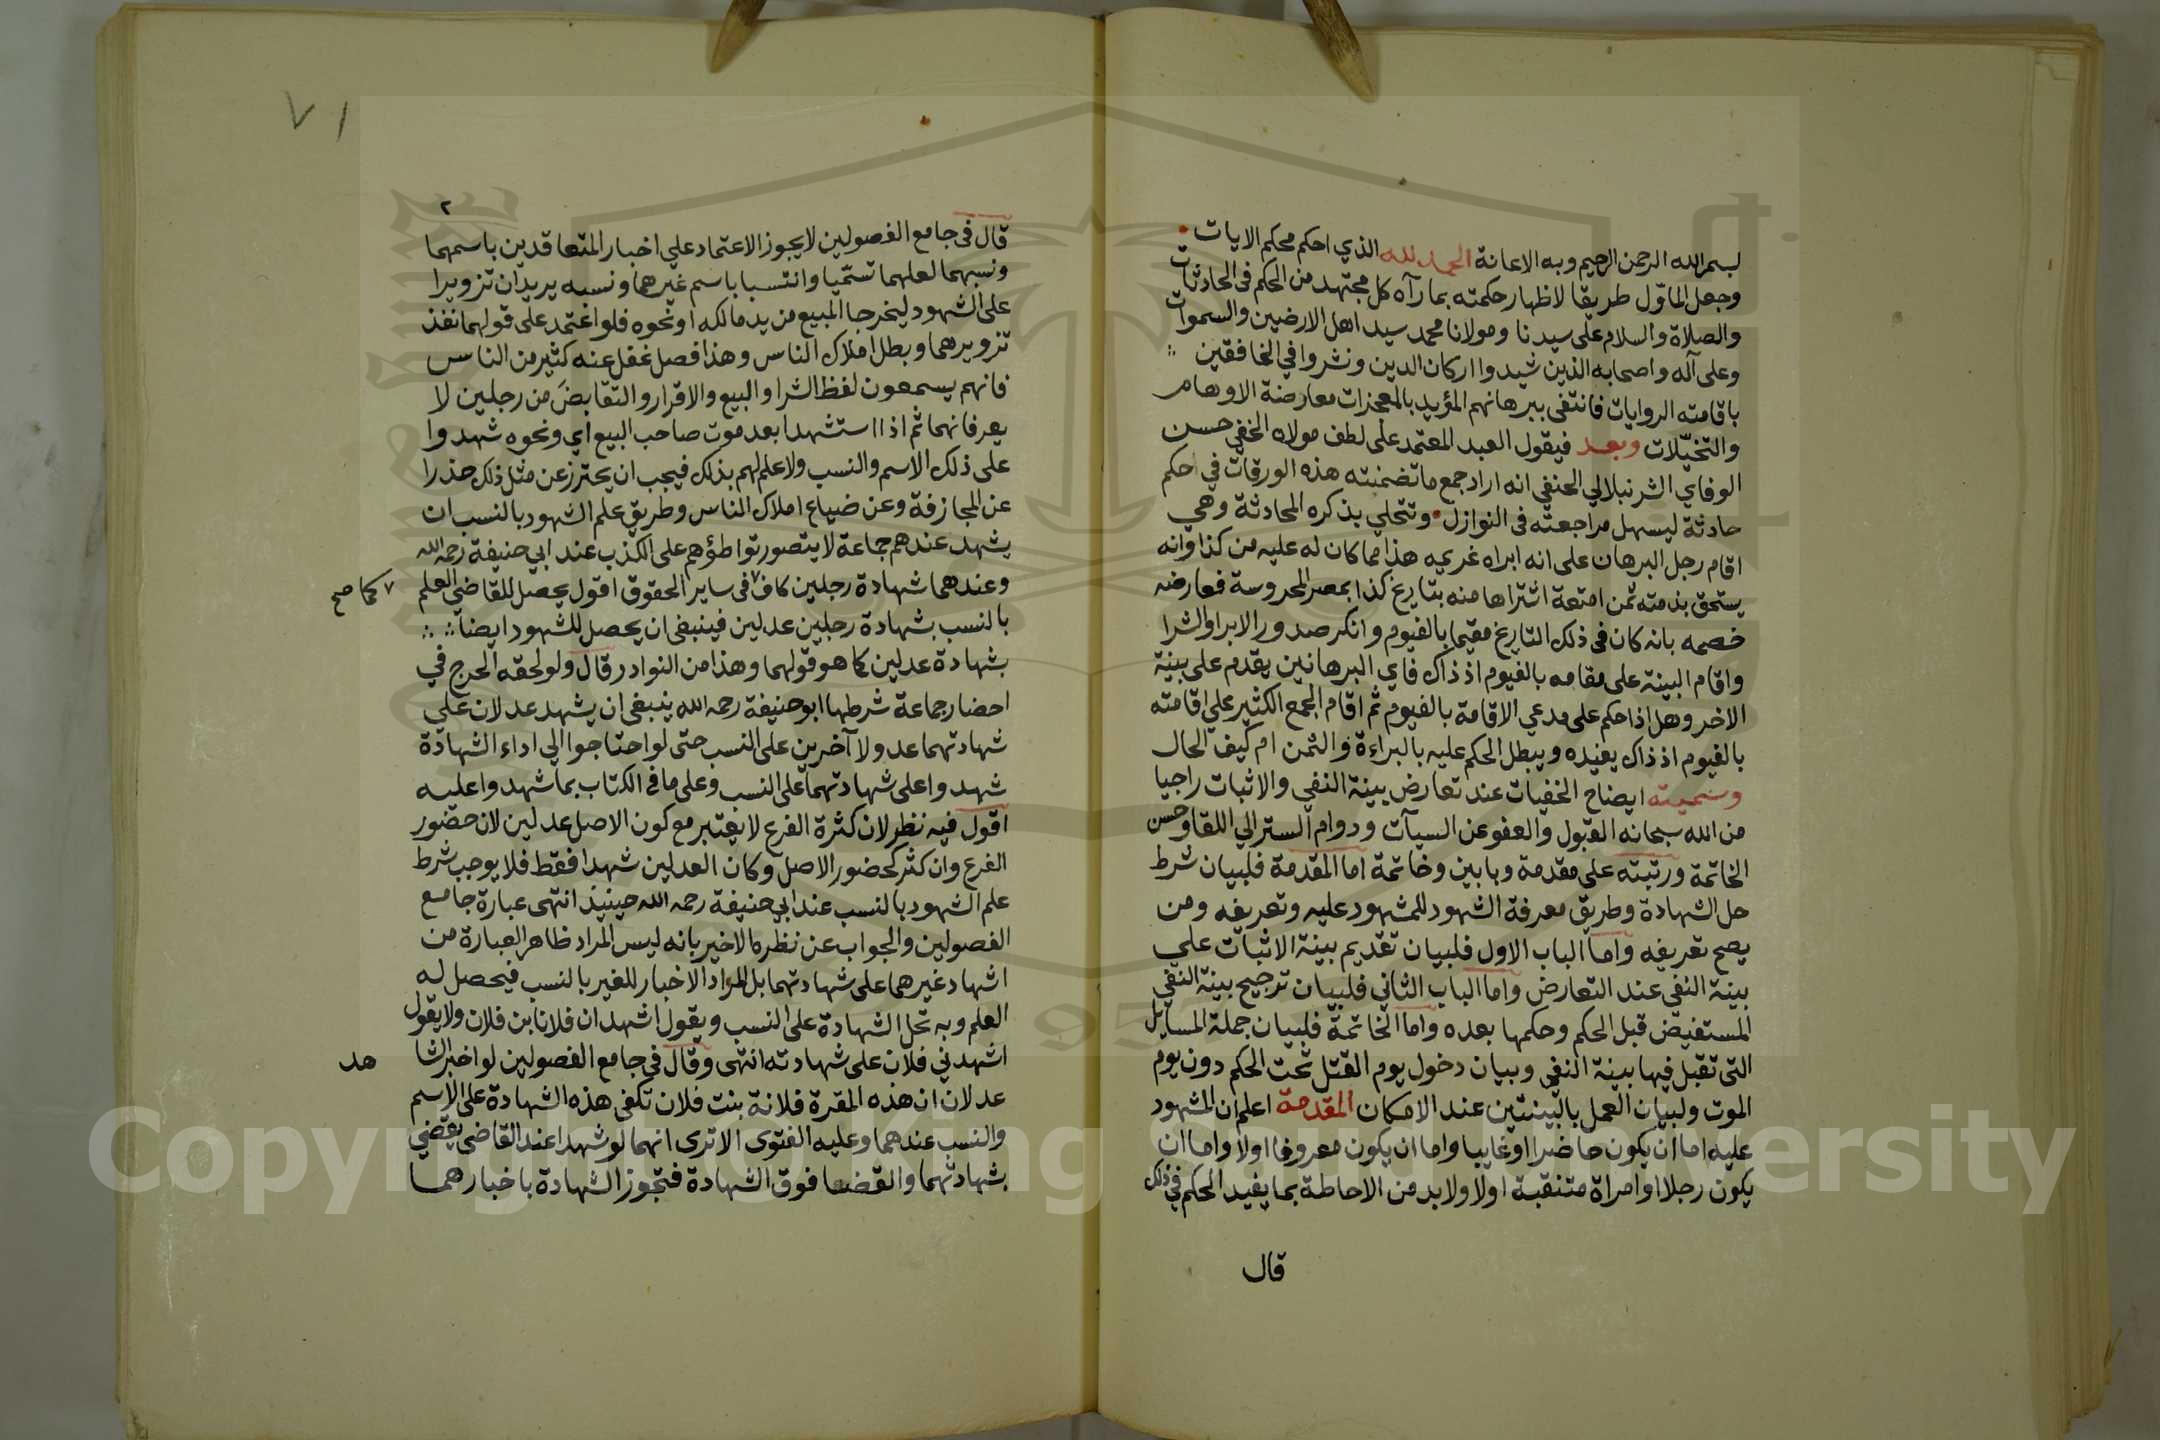 بسم الله الرحمن الرحيم وبه الاعانة الحمد لله الذي احكم محكم الايات
وجعل المأوّل طريقا لاظهار حكمته بما رآه كل مجتهد من الحكم في الحادثات
والصلاة والسلام على سيدنا ومولانا محمد سيد اهل الارضين والسموات
وعلى آله واصحابه الذين شيدوا اركان الدين ونشروا في الخافقين
باقامته الروايات فانتفى ببرهانهم المؤيد بالمعجزات معارضة الاوهام
والتخيّلات وبعد فيقول العبد المعتمد على لطف مولاه الخفي حسن
الوفاي الشرنبلالي الحنفي انه اراد جمع ما تضمنته هذه الورقات في احكم
حادثة ليسهل مراجعته في النوازل وتتحلي بذكره المحادثة وهي
اقام رجل البرهان على انه ابراه غريمه هذا مما كان له عليه من كذا وانه
يستحق بذمته ثمن امتعة اشتراها منه بتاريخ كذا بمصر المحروسة فعارضه
خصمه بانه كان في ذلك التاريخ مقيما بالفيوم وانكر صدور الابرا والشرا
واقام البينة على مقامه بالفيوم اذ ذاك فاي البرهانين يقدم على بينة
الاخر وهل اذا حكم على مدعي الاقامة بالفيوم ثم اقام الجمع الكثير علي اقامته
بالفيوم اذ ذاك يفيده ويبطل الحكم عليه بالبراءة والثمن ام كيف الحال
وسميته ايضاح الخفيات عند تعارض بينة النفي والاثبات راجيا
من الله سبحانه القبول والعفو عن السيآت ودوام الستر الي اللقا وحسن
الخاتمة ورتبته على مقدمة وبابين وخاتمة اما المقدمة فلبيان شرط
حل الشهادة وطريق معرفة الشهود للمشهود عليه وتعريفه ومن
يصح تعريفه واما الباب الاول فلبيان تقديم بينة الاثبات علي
بينة النفي عند التعارض واما الباب الثاني فلبيان ترجيح بينة النفي
المستفيض قبل الحكم وحكمها بعده واما الخاتمة فلبيان جملة المسايل
التي تقبل فيها بينة النفي وبيان دخول يوم القتل تحت الحكم دون يوم
الموت ولبيان العمل بالبينتين عند الامكان المقدمة اعلم ان المشهود
عليه اما ان يكون حاضرا او غايبا واما ان يكون معروفا اولا واما ان
يكون رجلا او امراة متنقبة اولا ولابد من الاحاطة بما يفيد الحكم في ذلك
قال
٧١
٢
قال في جامع الفصولين لا يجوز الاعتماد علي اخبار المتعاقدين باسمهما
ونسبهما لعلهما تسمّيا وانتسبا باسم غيرهما ونسبه يريدان تزويرا
على الشهود ليخرجا المبيع من يد مالكه او نحوه فلو اعتمد على قولهما نفذ
تزويرهما وبطل املاك الناس وهذا فصل غفل عنه كثير من الناس
فانهم يسمعون لفظ الشرا والبيع والاقرار والتقابض من رجلين لا
يعرفانهما ثم اذا استشهدا بعد موت صاحب البيع اي ونحوه شهدوا
على ذلك الاسم والنسب ولا علم لهم بذلك فيجب ان يحترز عن مثل ذلك حذرا
عن المجازفة وعن ضياع املاك الناس وطريق علم الشهود بالنسب ان
يشهد عندهم جماعة لا يتصور تواطؤهم على الكذب عند ابي حنيفة رحمه الله
وعندهما شهادة رجلين كاف ٧ في ساير الحقوق اقول يحصل للقاضي العلم
٧ كما صح
بالنسب بشهادة رجلين عدلين فينبغي ان يحصل للشهود ايضا
بشهادة عدلين كما هو قولهما وهذا من النوادر قال ولو لحقه الحرج في
احضار جماعة شرطها ابو حنيفة رحمه الله ينبغي ان يشهد عدلان علي
شهادتهما عدولا آخرين على النسب حتى لو احتاجوا الي اداء الشهادة
شهدوا على شهادتهما على النسب وعلى ما في الكتاب بما شهدوا عليه
اقول فيه نظر لان كثرة الفرع لا يعتبر مع كون الاصل عدلين لان حضور
الفرع وان كثر كحضور الاصل وكان العدلين شهدا فقط فلا يوجب شرط
علم الشهود بالنسب عند ابي حنيفة رحمه الله حينيذ انتهى عبارة جامع
الفصولين والجواب عن نظره الاخير بانه ليس المراد ظاهر العبارة من
اشهاد غيرهما على شهادتهما بل المراد الاخبار للغير بالنسب فيحصل له
العلم وبه تحل الشهادة على النسب ويقول اشهد ان فلانا بن فلان ولا يقول
اشهدني فلان على شهادته انتهى وقال في جامع الفصولين لو اخبر الشا
هد
عدلان ان هذه المقرة فلانة بنت فلان تكفي هذه الشهادة على الاسم
والنسب عندهما وعليه الفتوى الا ترى انهما لو شهدا عند القاضي يقضي
بشهادتهما والقضا فوق الشهادة فتجوز الشهادة باخبارهما
Copyright © King Saud University